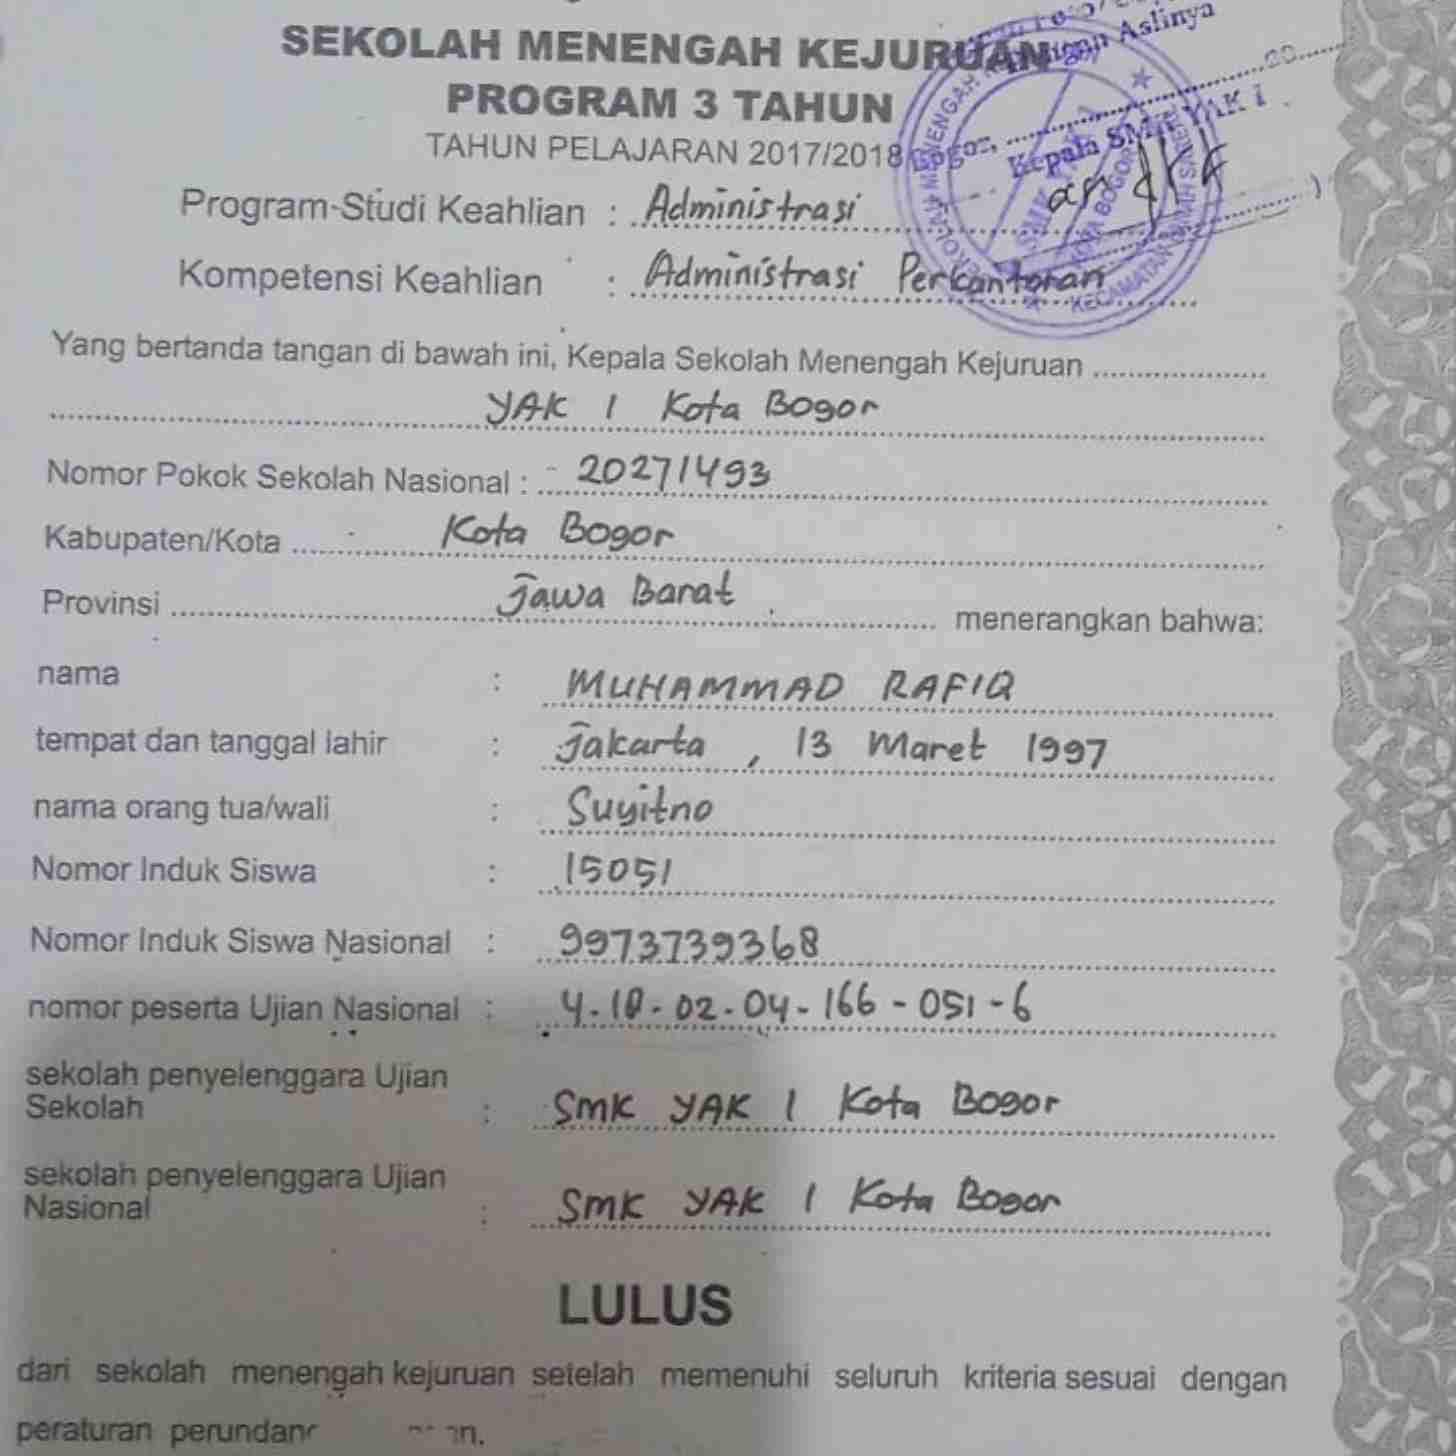 SEKOLAH MENENGAH KEJURUAN
PROGRAM 3 TAHUN
TAHUN PELAJARAN 2017/2018
Aslinya
20
Bogor,
Kepala SMK YAK 1
SMK YAK 1
KOTA BOGOR
SEKOLAH MENENGAH
KECAMATAN TANAH SAREAL
Program Studi Keahlian : Administrasi
Kompetensi Keahlian : Administrasi Perkantoran
Yang bertanda tangan di bawah ini, Kepala Sekolah Menengah Kejuruan
YAK 1 Kota Bogor
Nomor Pokok Sekolah Nasional : 20271493
Kabupaten/Kota Kota Bogor
Provinsi Jawa Barat menerangkan bahwa:
nama : MUHAMMAD RAFIQ
tempat dan tanggal lahir : Jakarta, 13 Maret 1997
nama orang tua/wali : Suyitno
Nomor Induk Siswa : 15051
Nomor Induk Siswa Nasional : 9973739368
nomor peserta Ujian Nasional : 4-18-02-04-166-051-6
sekolah penyelenggara Ujian
Sekolah : SMK YAK 1 Kota Bogor
sekolah penyelenggara Ujian
Nasional : SMK YAK 1 Kota Bogor
LULUS
dari sekolah menengah kejuruan setelah memenuhi seluruh kriteria sesuai dengan
peraturan